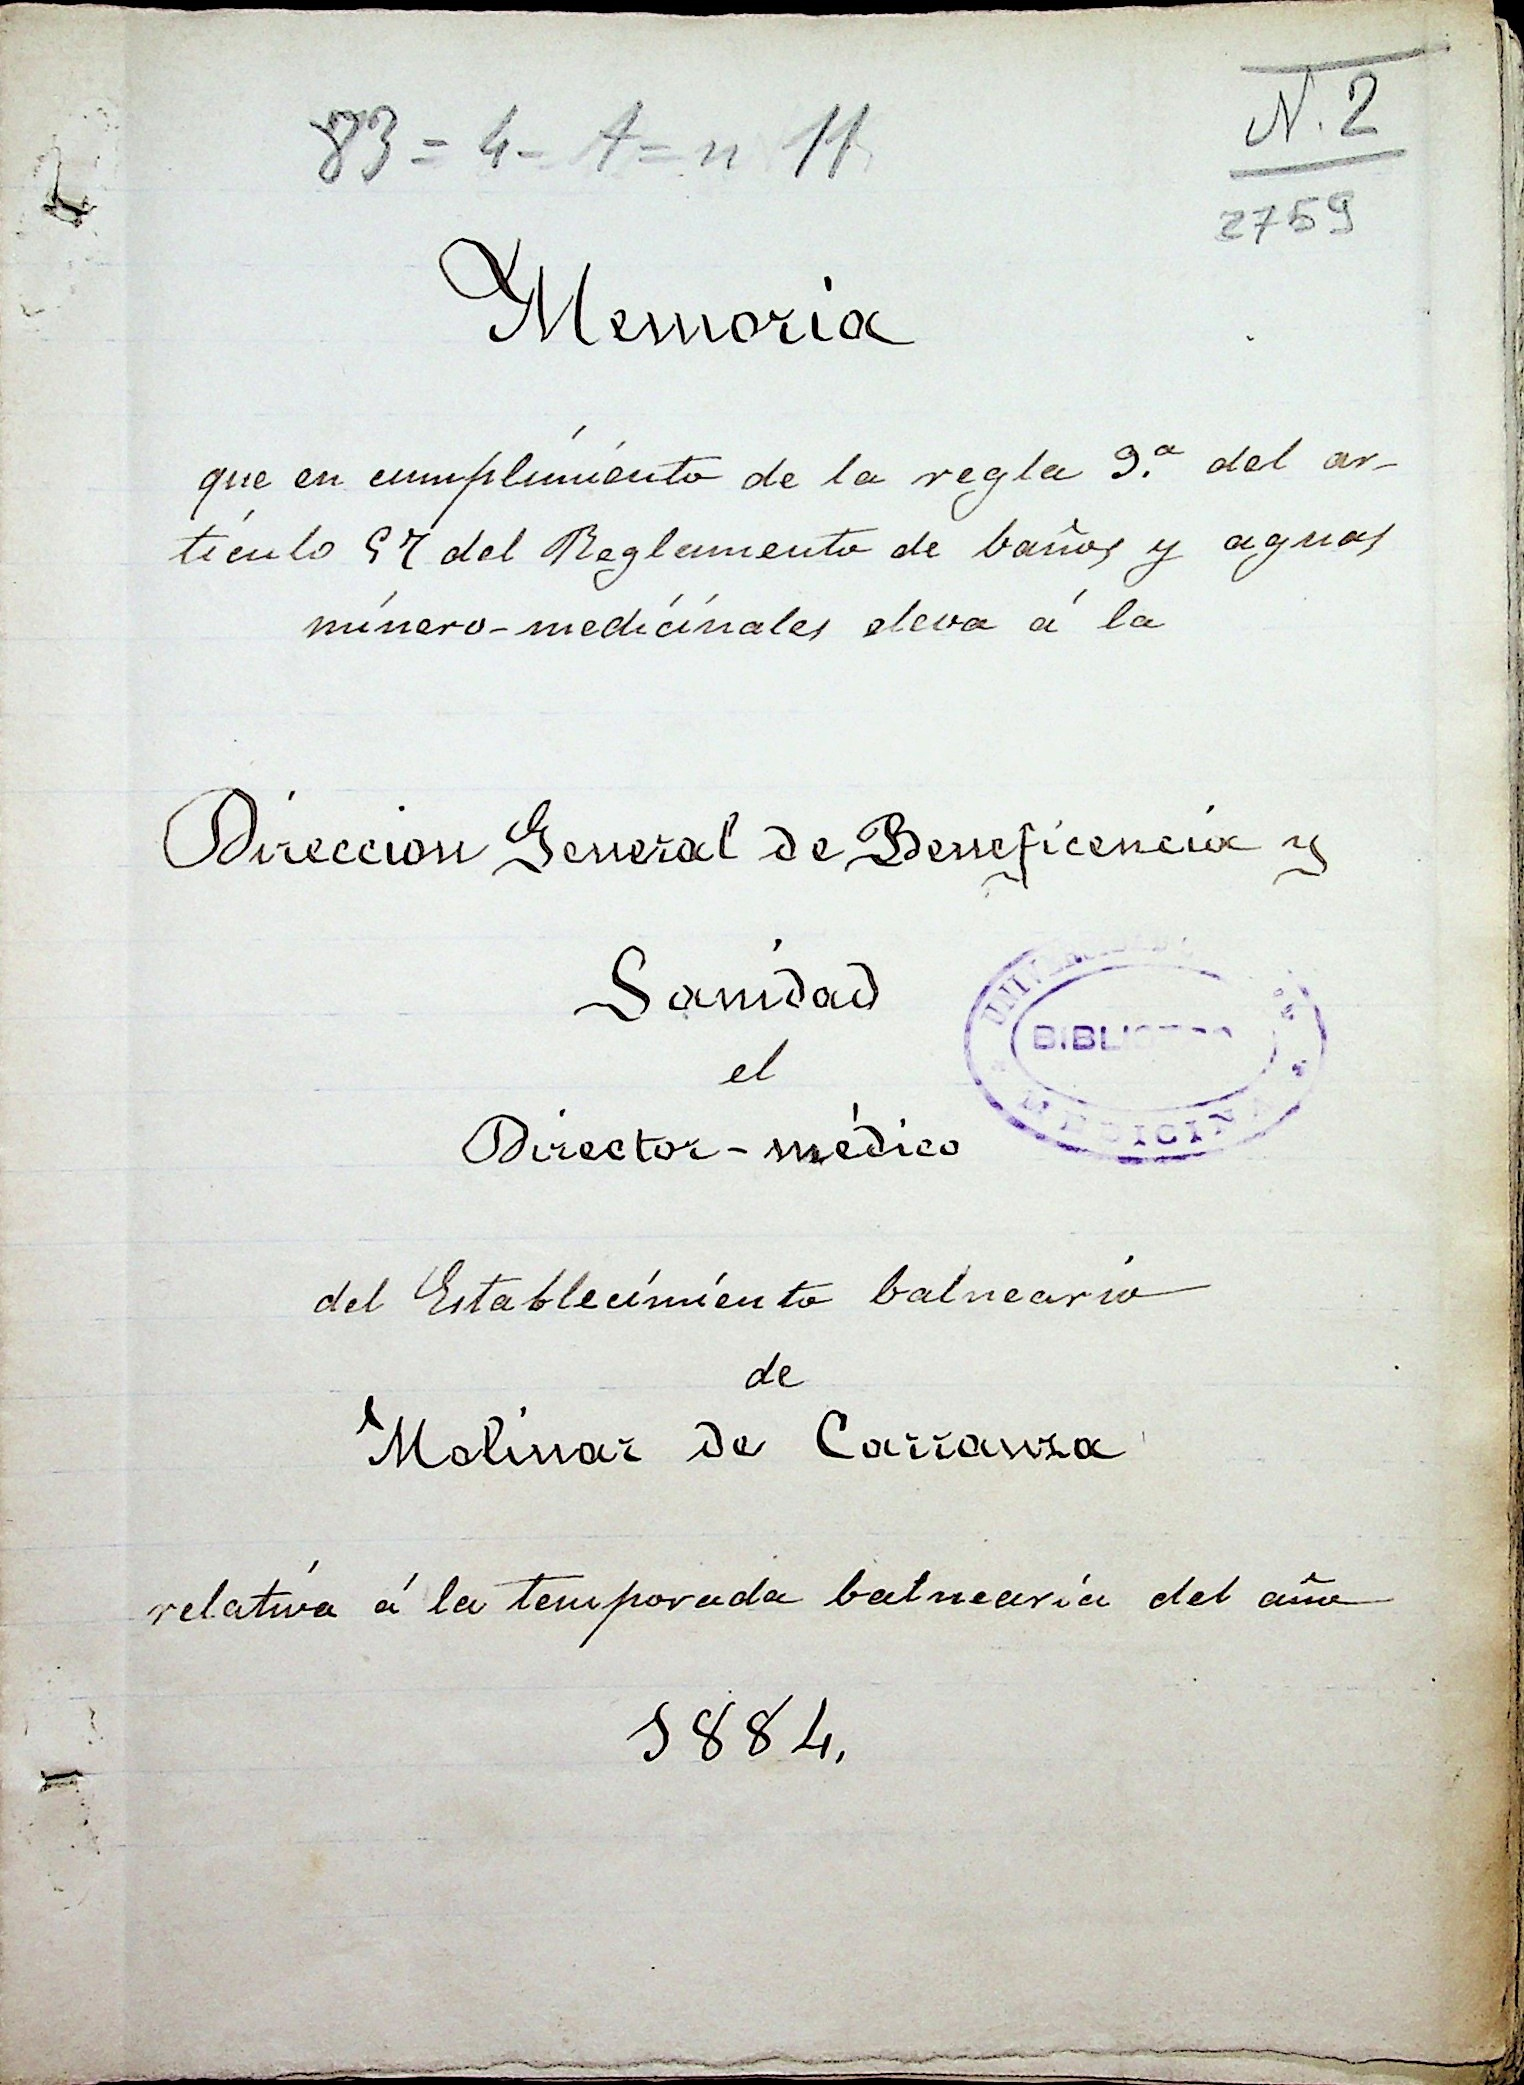 83=4-A=n 11
N. 2
2759
Memoria
que en cumplimiento de la regla 9.ª del ar-
tículo 57 del Reglamento de baños y aguas
minero-medicinales eleva á la
Direccion General de Beneficencia y
Sanidad
BIBLIOTECA
MEDICINA
el
Director-médico
del Establecimiento balneario
de
Molinar de Carranza
relativa á la temporada balnearia del año
1884.